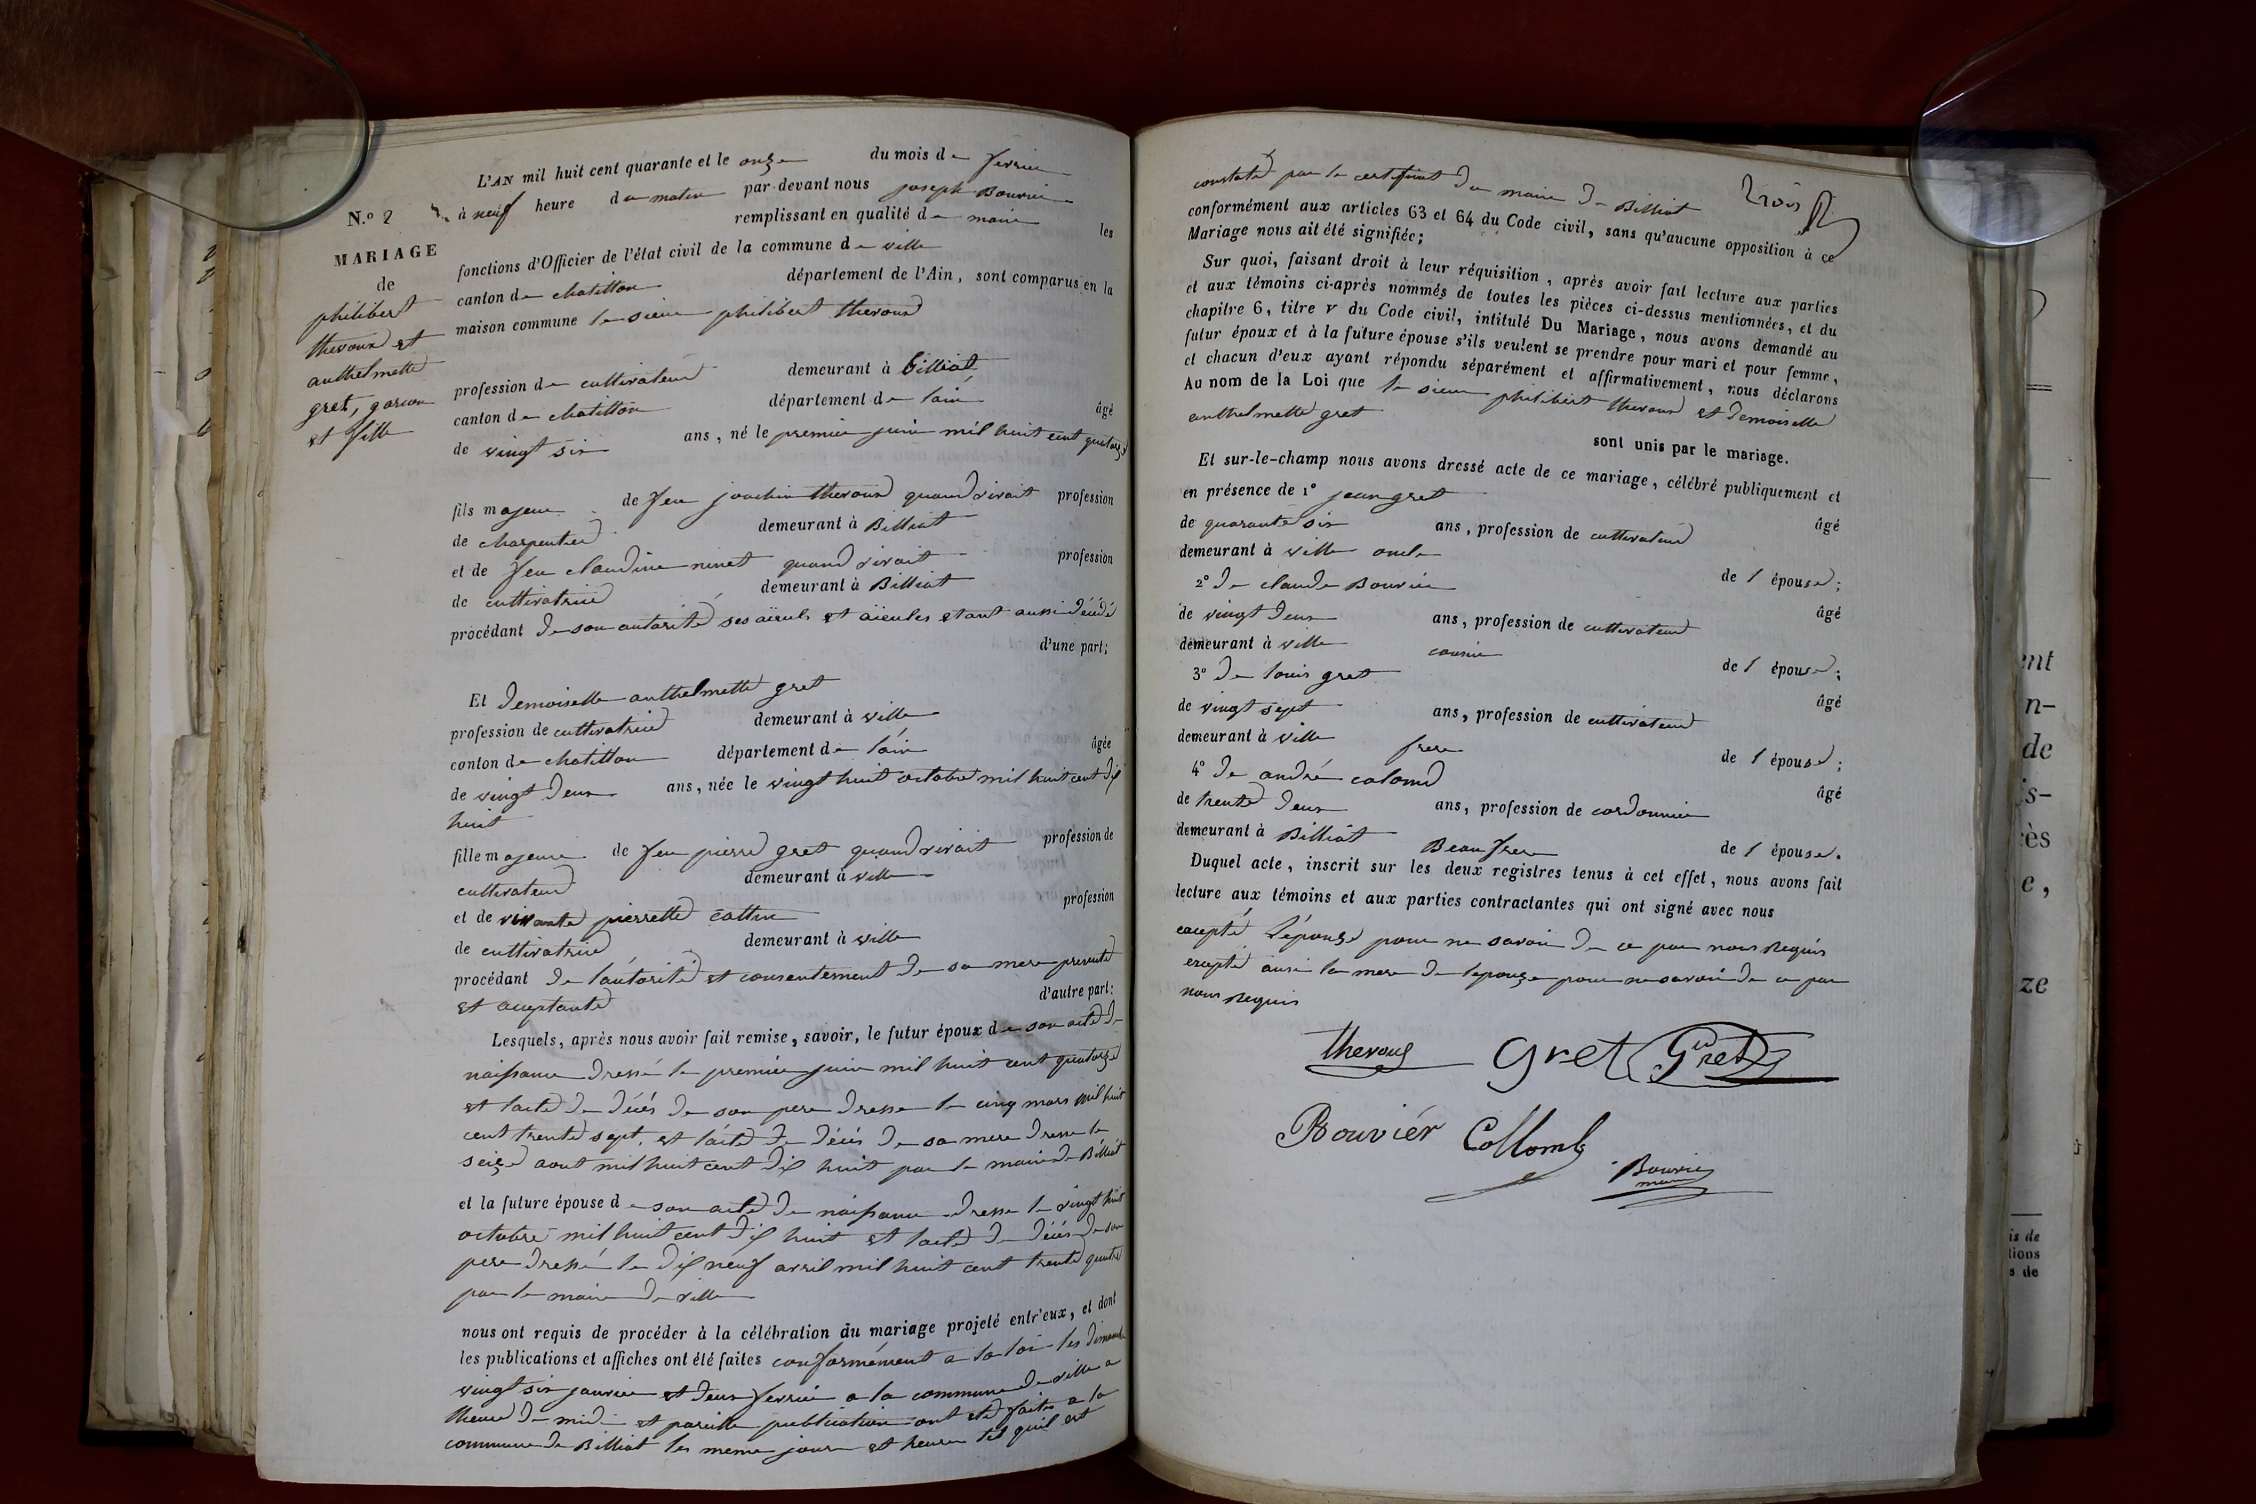 L'AN mil huit cent quarante et le onze du mois de fevrier
N.º 2 à neuf heure du matin par-devant nous joseph Bouvier
remplissant en qualité de maire les
MARIAGE
de
philibert
theroux et
authelmette
gret, garcon
et fille
fonctions d'Officier de l'état civil de la commune de ville
canton de chatillon département de l'Ain, sont comparus en la
maison commune le sieur philibert theroux
profession de cultivateur demeurant à billiat
canton de chatillon département de lain âgé
de vingt six ans, né le premier juin mil huit cent quatorze
fils majeur de feu joachin theroux quand vivait profession
de charpentier demeurant à Billiat
et de feu claudine ninet quand vivait profession
de cultivatrice demeurant à Billiat
procédant de son autorité ses aieuls et aieules etant aussi décédé
d'une part;
Et demoiselle authelmette gret
profession de cultivatrice demeurant à ville
canton de chatillon département de lain âgée
de vingt deux ans, née le vingt huit octobre mil huit cent dix
huit
fille majeure de feu pierre gret quand vivait profession de
cultivateur demeurant à ville
et de vivante pierrette cattin profession
de cultivatrice demeurant à ville
procédant de lautorité et consentement de sa mere presente
et aceptante d'autre part:
Lesquels, après nous avoir fait remise, savoir, le futur époux de son acte de
naissance dressé le premier juin mil huit cent quatorze
et lacte de décés de son pere dresse le cinq mars mil huit
cent trente sept, et lacte de décés de sa mere dresse le
seize aout mil huit cent dix huit par le maire de Billiat
et la future épouse de son acte de naissance dresse le vingt huit
octobre mil huit cent dix huit et lacte de décés de son
pere dressé le dix neuf avril mil huit cent trente quatre
par le maire de ville
nous ont requis de procéder à la célébration du mariage projeté entr'eux, et dont
les publications et affiches ont été faites conformément a la loi les dimanche
vingt six janvier et deux fevrier a la commune de ville a
lheure de midi et pareille publication ont eté faites a la
commune de Billiat les meme jour et heure tel quil est
constaté par le certificat du maire de Billiat trois
conformément aux articles 63 et 64 du Code civil, sans qu'aucune opposition à ce
Mariage nous ait été signifiée;
Sur quoi, faisant droit à leur réquisition, après avoir fait lecture aux parties
et aux témoins ci-après nommés de toutes les pièces ci-dessus mentionnées, et du
chapitre 6, titre v du Code civil, intitulé Du Mariage, nous avons demandé au
futur époux et à la future épouse s'ils veulent se prendre pour mari et pour femme,
et chacun d'eux ayant répondu séparément et affirmativement, nous déclarons
Au nom de la Loi que le sieur philibert theroux et demoiselle
authelmette gret
sont unis par le mariage.
Et sur-le-champ nous avons dressé acte de ce mariage, célébré publiquement et
en présence de 1º jean gret âgé
de quarante six ans, profession de cultivateur
demeurant à ville oncle de l épouse;
2º de claude Bouvier âgé
de vingt deux ans, profession de cultivateur
demeurant à ville cousin de l épouse;
3º de louis gret âgé
de vingt sept ans, profession de cultivateur
demeurant à ville frere de l épouse;
4º de andré colomb âgé
de trente deux ans, profession de cordonnier
demeurant à Billiat Beau frere de l épouse.
Duquel acte, inscrit sur les deux registres tenus à cet effet, nous avons fait
lecture aux témoins et aux parties contractantes qui ont signé avec nous
excepté Lépouse pour ne savoir de ce par nous Requis
excepté ausi la mere de lepouze pour ne savoir de ce par
nous Requis
theroux Gret Gret
Bouviér Collomb
Bouvier
maire